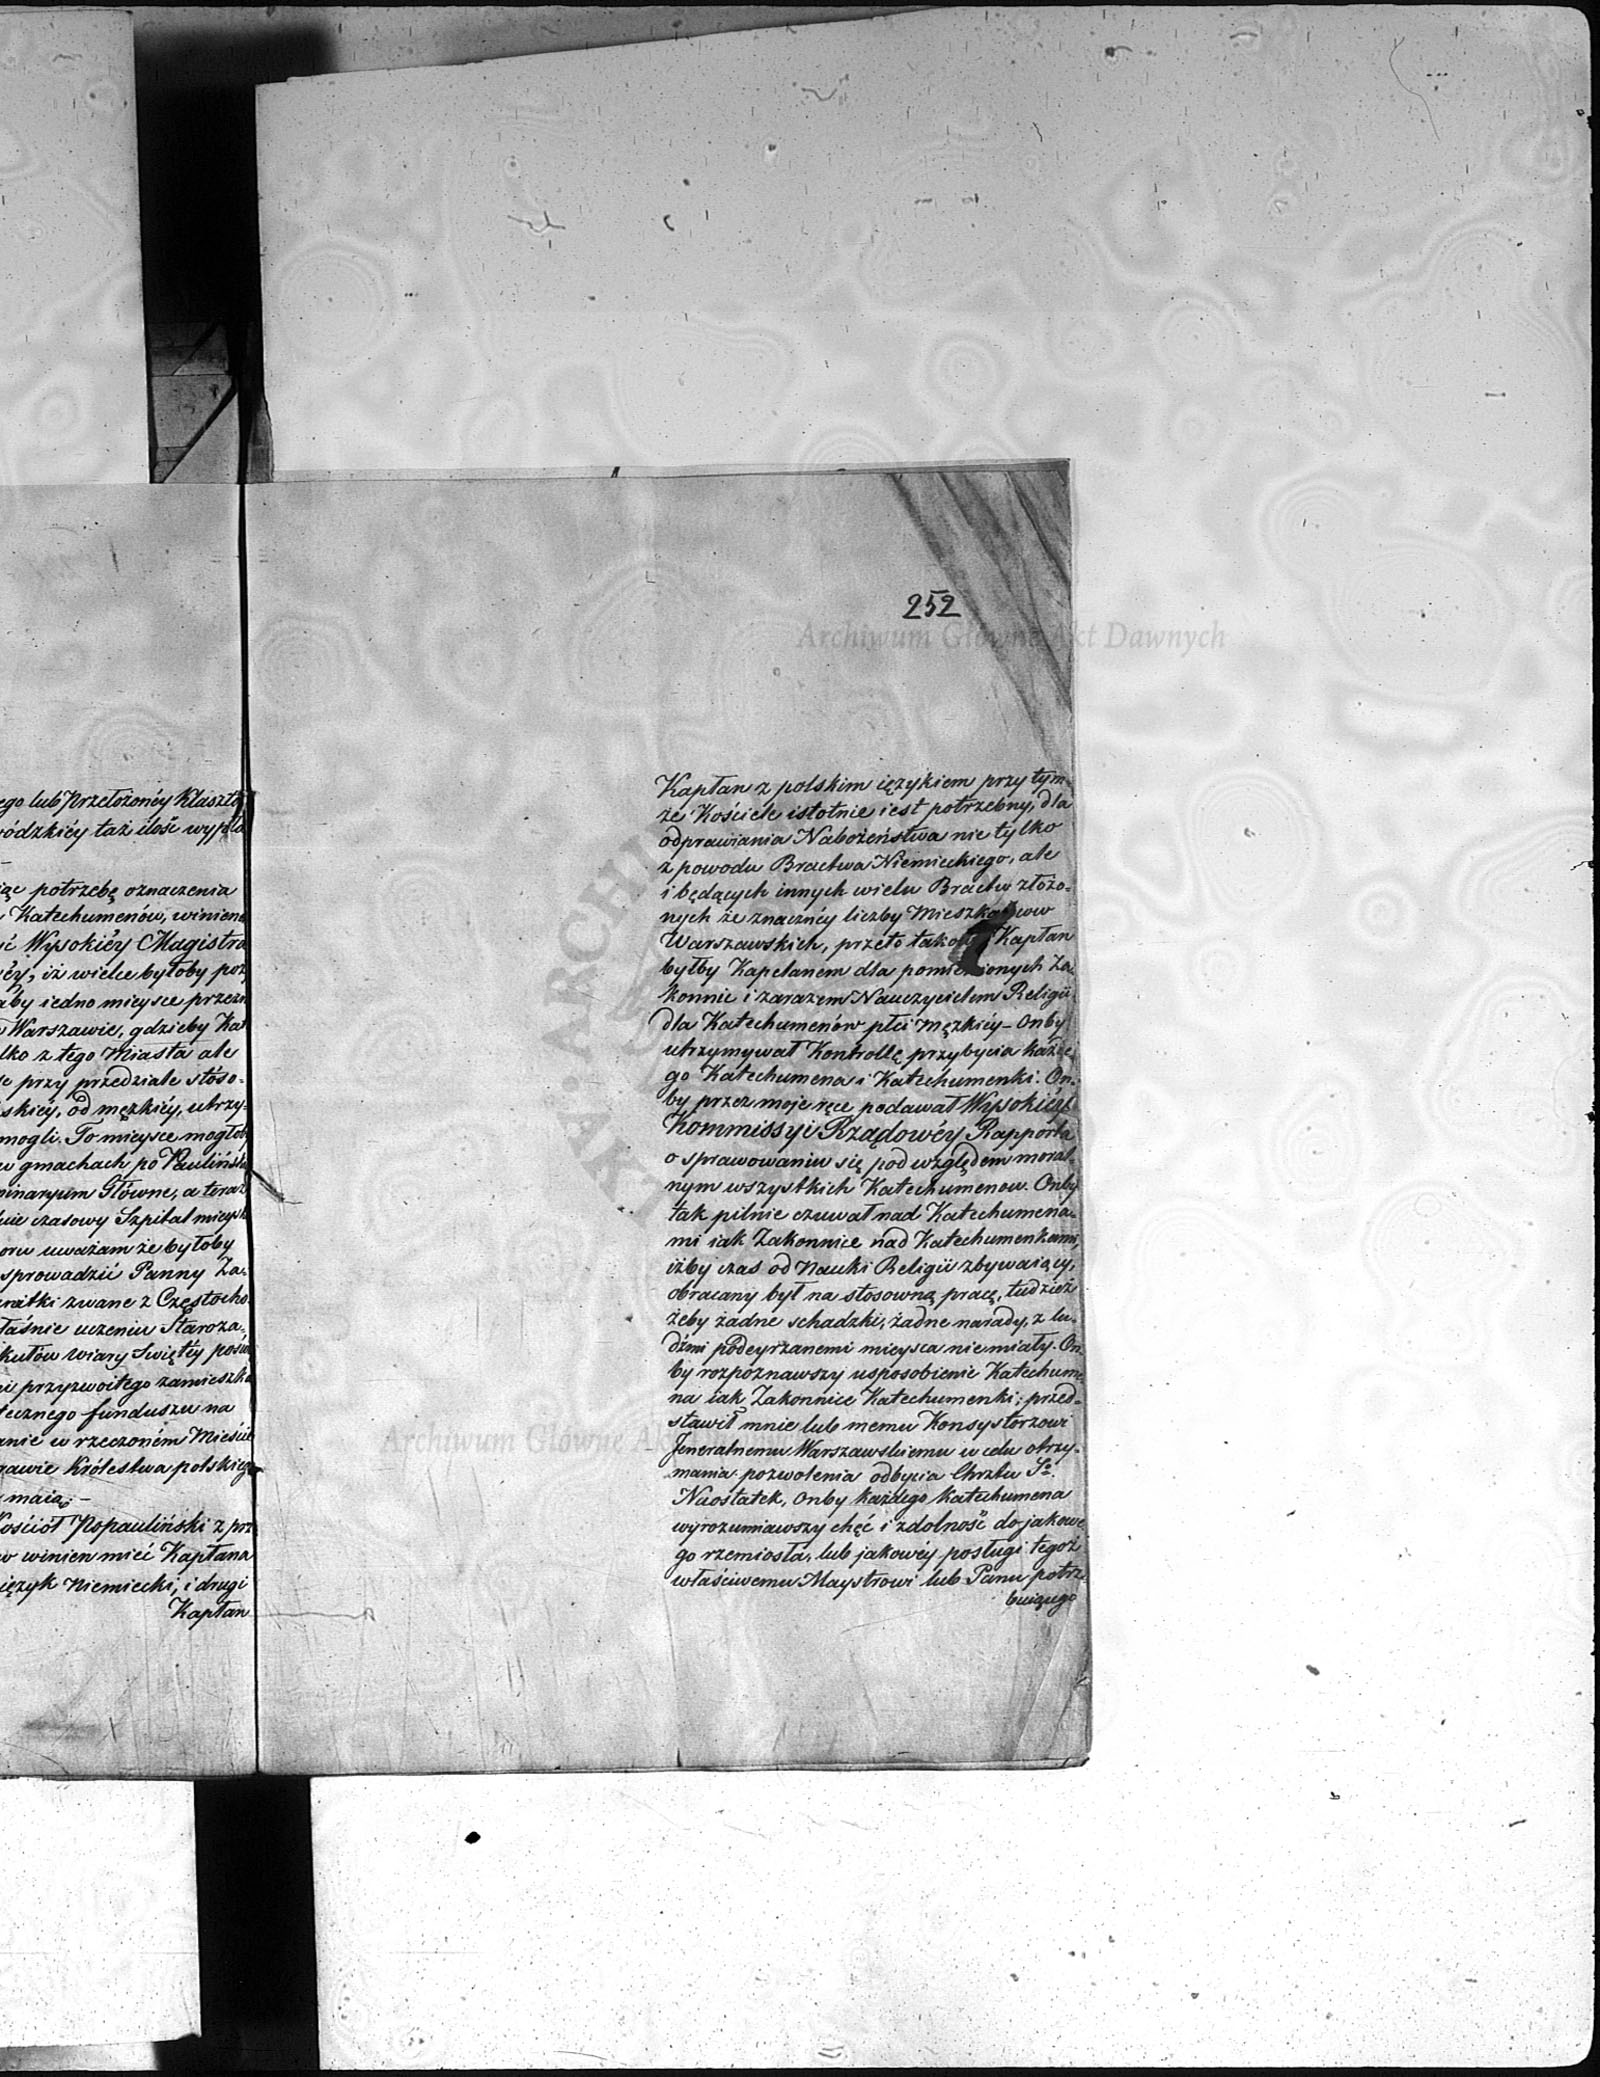 ego lub Przełożonéy Klaszto
wódzkiéy taż ilość wypła
iąc potrzebę oznaczenia
Katechumenów, winiene
Wysokiéy Magistra
éy, iż wielce byłoby poż
aby iedno mieysce przezn
Warszawie, gdzieby Kat
lko z tego Miasta ale
przy przedziale stóso-
skiéy, od męzkiéy, utrzy-
mogli. To mieysce mogłob
w gmachach po Paulińsk
minaryum Główne, a teraz
czasowy Szpital mieysk
oru uważam że byłoby
sprowadzić Panny Za-
zwane z Częstocho
łaśnie uczeniu Staroza-
kułów wiary Świętéy pośw
przyzwoitego zamieszka
tecznego funduszu na
anie w rzeczoném Mieście
rawie Królestwa polskieg
maią; -
Kościół Popauliński z prz
w winien mieć Kapłana
ięzyk Niemiecki, i drugi
Kapłan
252
Kapłan z polskim ięzykiem przy tym-
że Kościele istotnie iest potrzebny, dla
odprawiania Nabożeństwa nie tylko
z powodu Bractwa Niemieckiego, ale
i będących innych wielu Bractw złożo-
nych ze znacznéy liczby Mieszkańców
Warszawskich, przeto takowy Kapłan
byłby Kapelanem dla pomienionych Za-
konnic i zarazem Nauczycielem Religii
dla Katechumenów płci Męzkiéy - Onby
utrzymywał Kontrollę przybycia każde
go Katechumena i Katechumenki. On-
by przez moje ręce podawał Wysokiéy
Kommissyi Rządowéy Rapporta
o sprawowaniu się pod względem moral-
nym wszystkich Katechumenow. Onby
tak pilnie czuwał nad Katechumena-
mi iak Zakonnice nad Katechumenkami,
iżby czas od Nauki Religii zbywaiący,
obracany był na stosowną pracę, tudzież
żeby żadne schadzki, żadne narady, z lu-
dźmi podeyrzanemi mieysca nie miały. On
by rozpoznawszy usposobienie Katechume
na iak Zakonnice Katechumenki; przed-
stawił mnie lub memu Konsystorzowi
Jeneralnemu Warszawskiemu w celu otrzy-
mania pozwolenia odbycia Chrztu So.
Naostatek, Onby każdego Katechumena
wyrozumiawszy chęć i zdolność do jakowe
go rzemiosła, lub jakowéy posługi tegoż
właściwemu Maystrowi lub Panu potrze
buiącego
Archiwum Główne Akt Dawnych